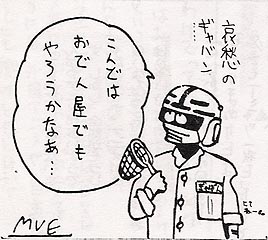 哀愁の
ギャバン
こんどは
おでん屋でも
やろうかなあ…
ぎゃばん
MVE